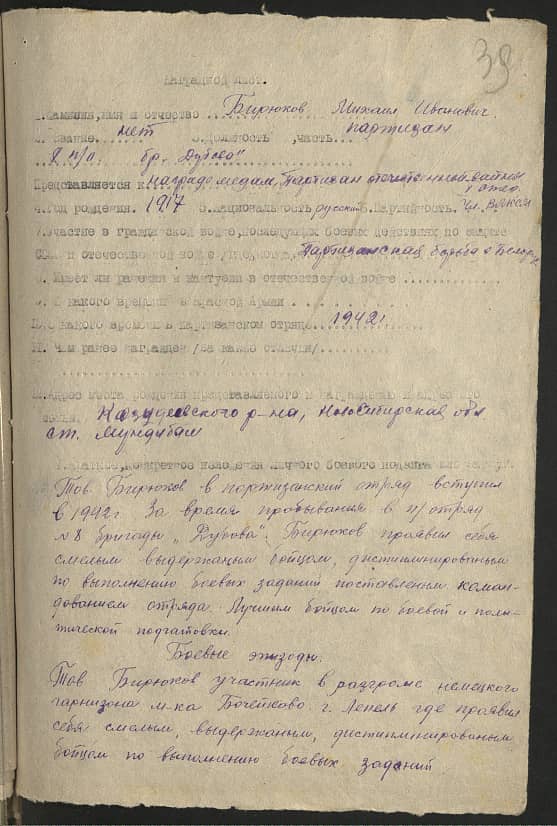 39
Наградной лист.
1. Фамилия, имя и отчество ... Бирюков Михаил Иванович.
2. Звание ... нет 3. Должность, часть ... партизан
8 п/о. бр. Дубова
Представляется к награде медали, Партизан отечественной войны
4. Год рождения. 1917 5. Национальность русский 6. Партийность. Чл. ВЛКСМ
7. Участие в гражданской войне, последующих боевых действиях по защите
СССР и отечественной войне Партизанская борьба в
8. Имеет ли ранения и контузии в отечественной войне
9. С какого времени в Красной Армии
10. С какого времени в партизанском отряде ... 1942 г
11. Чем ранее награжден /за какие отличия/
12. Адрес места рождения представляемого к награждению и адрес его
семьи. р-на, Новосибирская обл
ст. Мундыбаш
Краткое, конкретное изложение личного боевого подвига или заслуг.
Тов. Бирюков в партизанский отряд вступил
в 1942 г За время пробывания в п/отряд
№8 бригады „Дубова". Бирюков проявил себя
смелым выдержаным бойцом, дистиплинированым
по выполнению боевых заданий поставленым коман-
дованием отряда. Лучшим бойцом по боевой и поли-
тической подготовки.
Боевые эпизоды.
Тов Бирюков участник в разгроме немецкого
гарнизона м-ка Бочейково г. Лепель где проявил
себя смелым, выдержаным, дистиплинированым
бойцом по выполнению боевых заданий